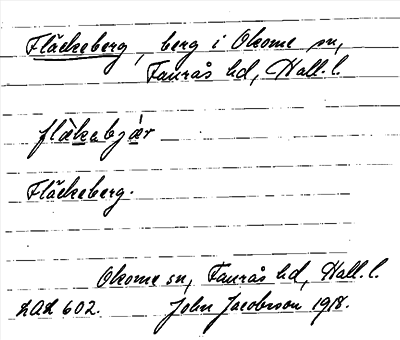 Fläckeberg, berg i Okome sn,
Faurås hd, Hall. l.
flækabjær
Fläckeberg.
Okome sn, Faurås hd, Hall. l.
LAL 602. John Jacobsson 1918.